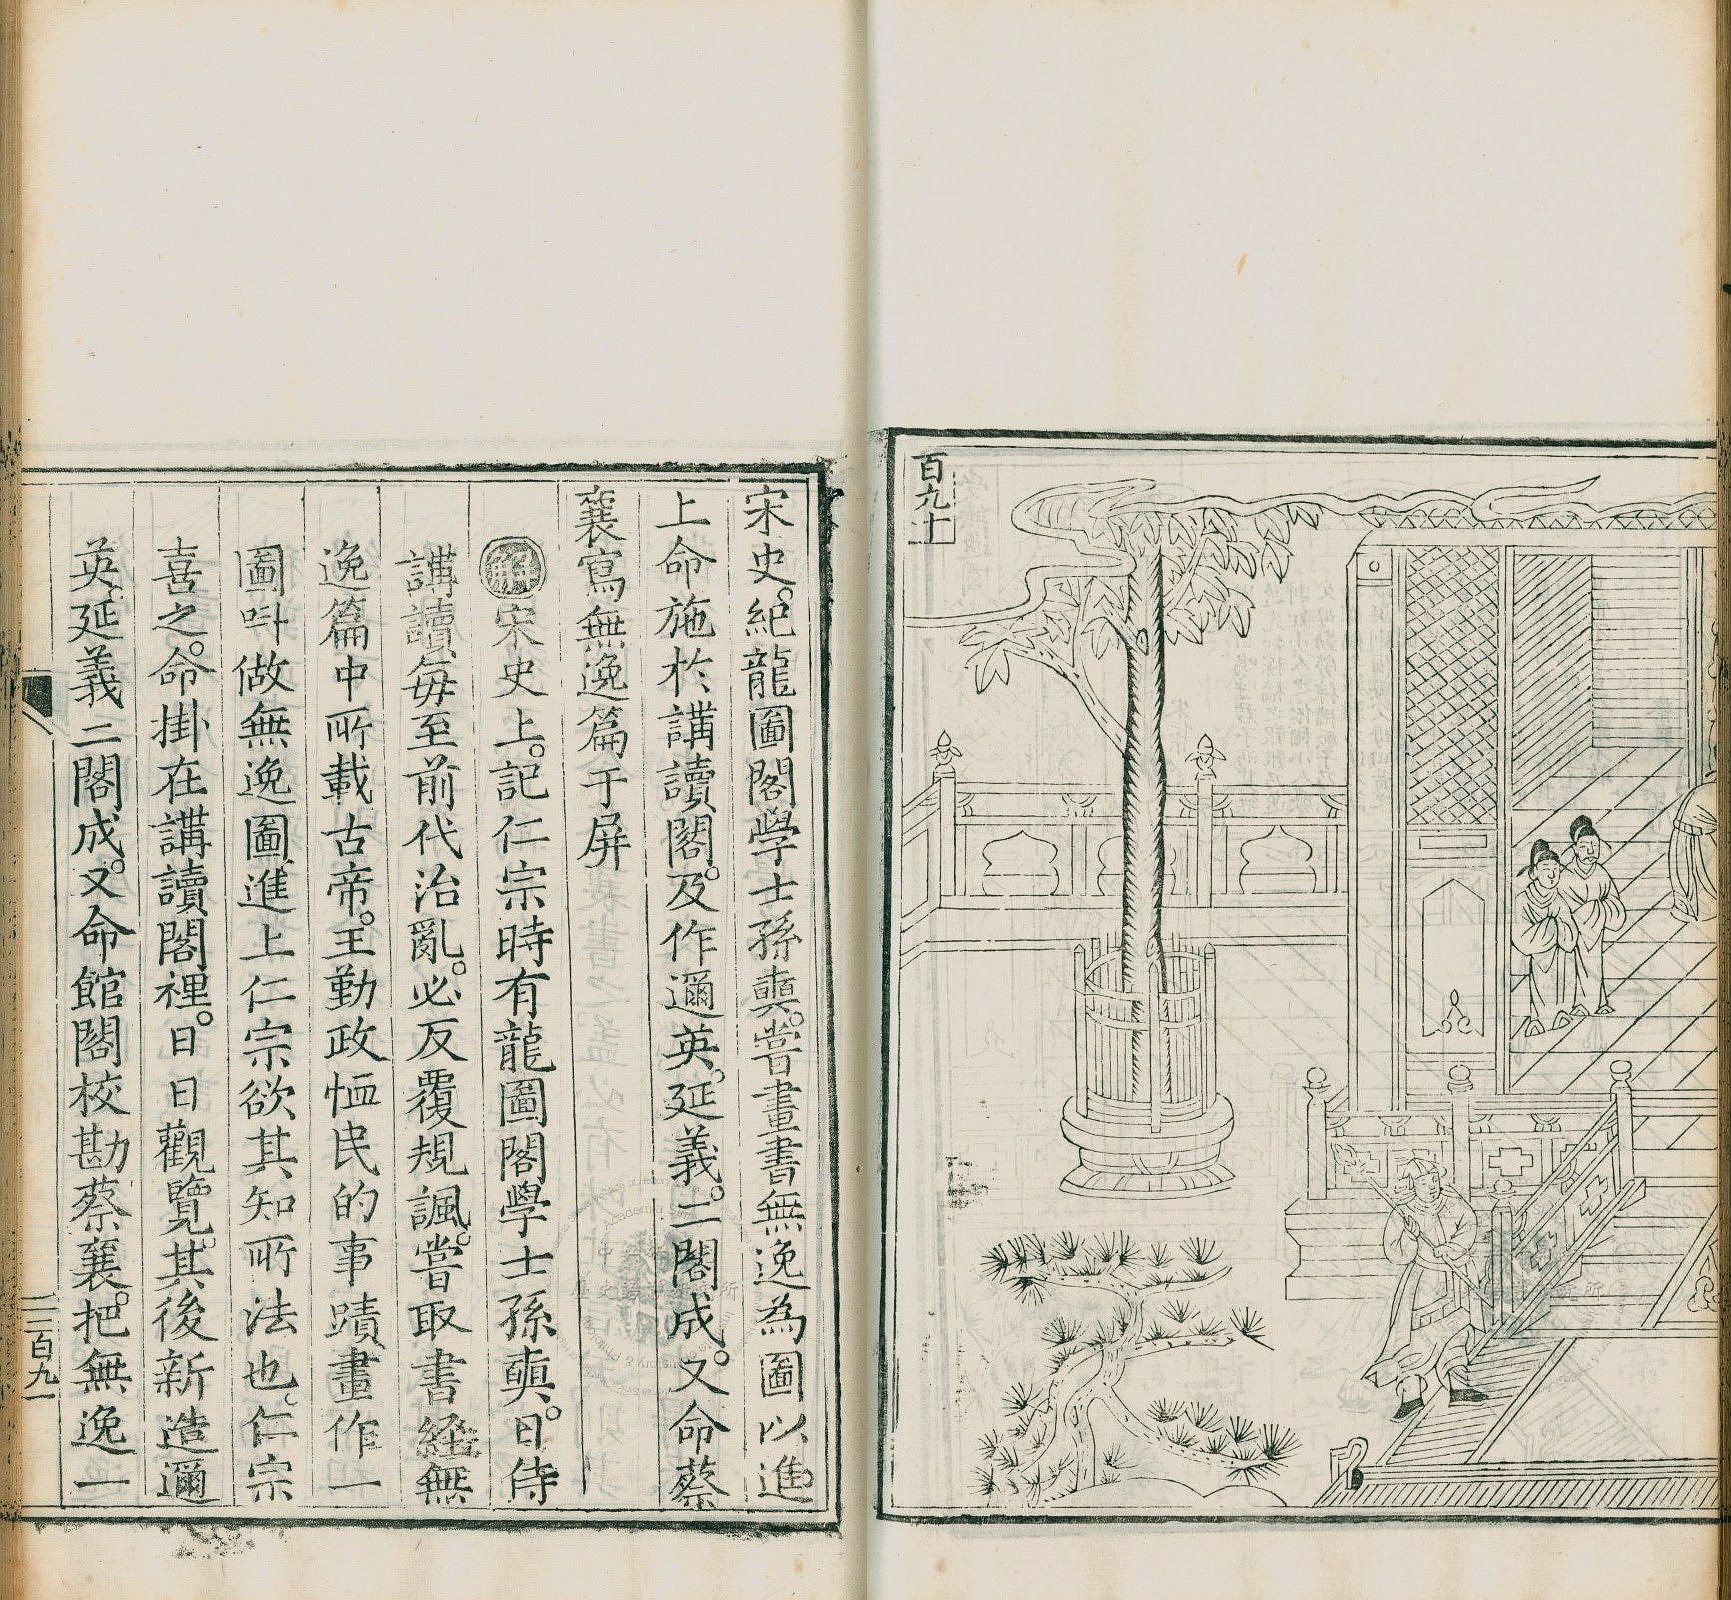 百九十
宋史。紀龍圖閣學士孫奭。嘗畫書無逸為圖以進
上命施於講讀閣。及作邇英。延義。二閣成。又命蔡
襄寫無逸篇于屏
解宋史上。記仁宗時有龍圖閣學士孫奭。日侍
講讀每至前代治亂。必反覆規諷。嘗取書經無
逸篇中所載古帝。王勤政恤民的事蹟畫作一
圖呌做無逸圖進上仁宗欲其知所法也。仁宗
喜之。命掛在講讀閣裡。日日觀覽。其後新造邇
英。延義二閣成。又命館閣校勘蔡襄。把無逸一
二百九一